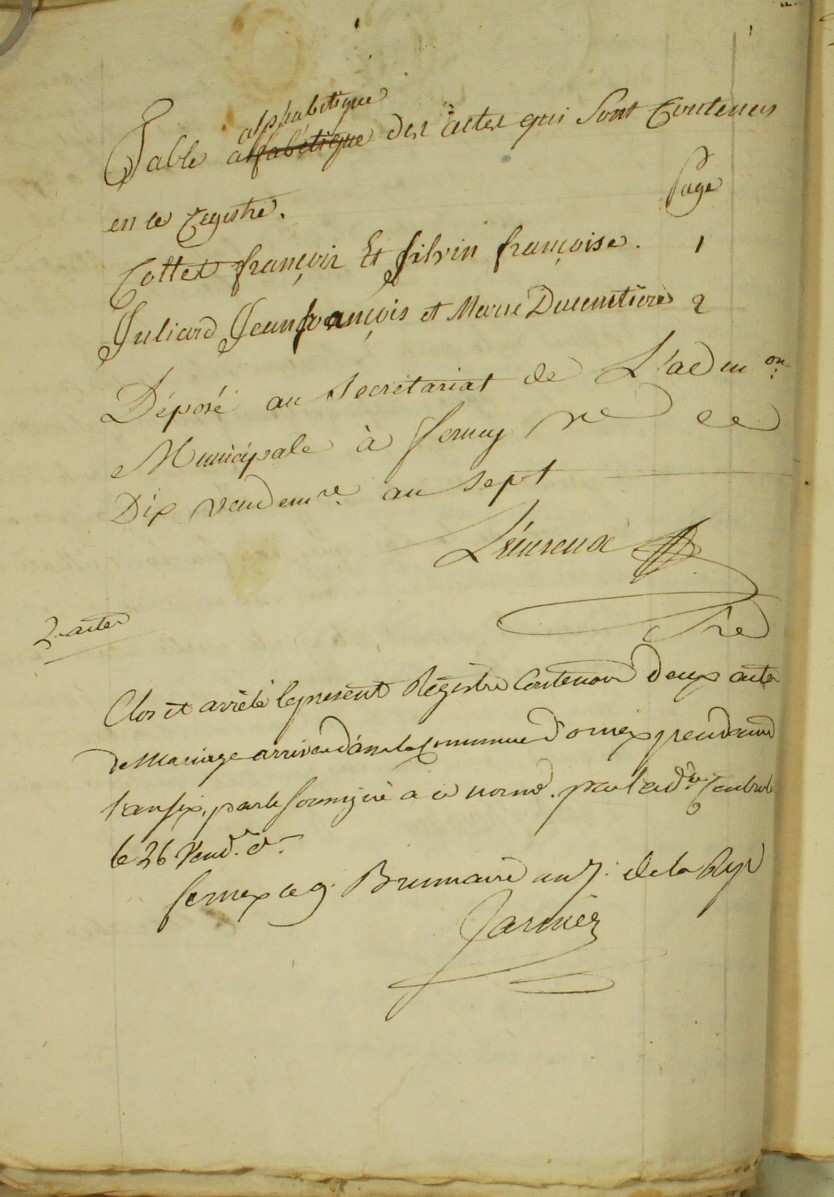 alphabétique
Table alfabétique des actes qui sont Contenus
en ce Registre. Page
Collet françois Et Silvin françoise. 1
Juliard Jeanfrançois et Marie Ducimtière 2
Déposé au Secrétariat de L'adm.on
Municipale à ferney ce
Dix vendem.re an Sept
2 actes
Clos et arrêté le present Régistre Contenant deux actes
de Mariage arrivés dans la Commune d'ornex pendant
l'an six, par le Soussigné à ce nommé. par l'ad.on Centrale
le 26 Vend.re d.r
fernex ce 9. Brumaire an 7. de la Rep